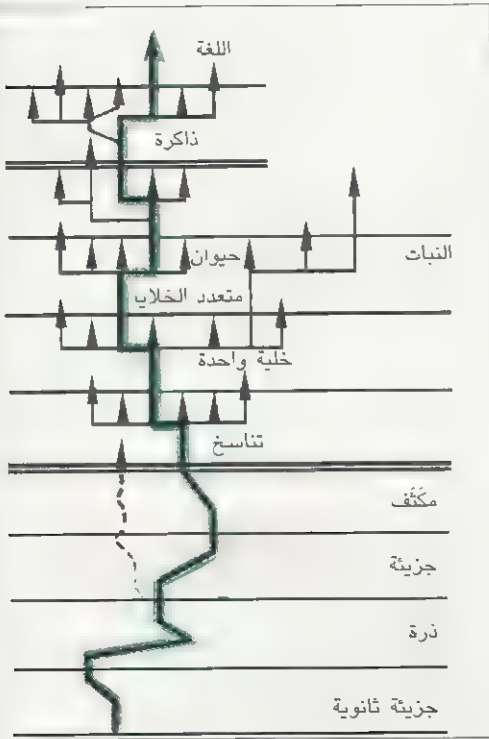 اللغة
ذاكرة
حيوان
النبات
متعدد الخلايا
خلية واحدة
تناسخ
مكثف
جزيئة
ذرة
جزيئة ثانوية